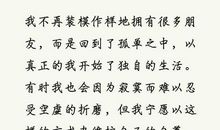 我不再装模作样地拥有很多朋
友，而是回到了孤单之中，以
真正的我开始了独自的生活。
有时我也会因为寂寞而难以忍
受空虚的折磨，但我宁愿以这